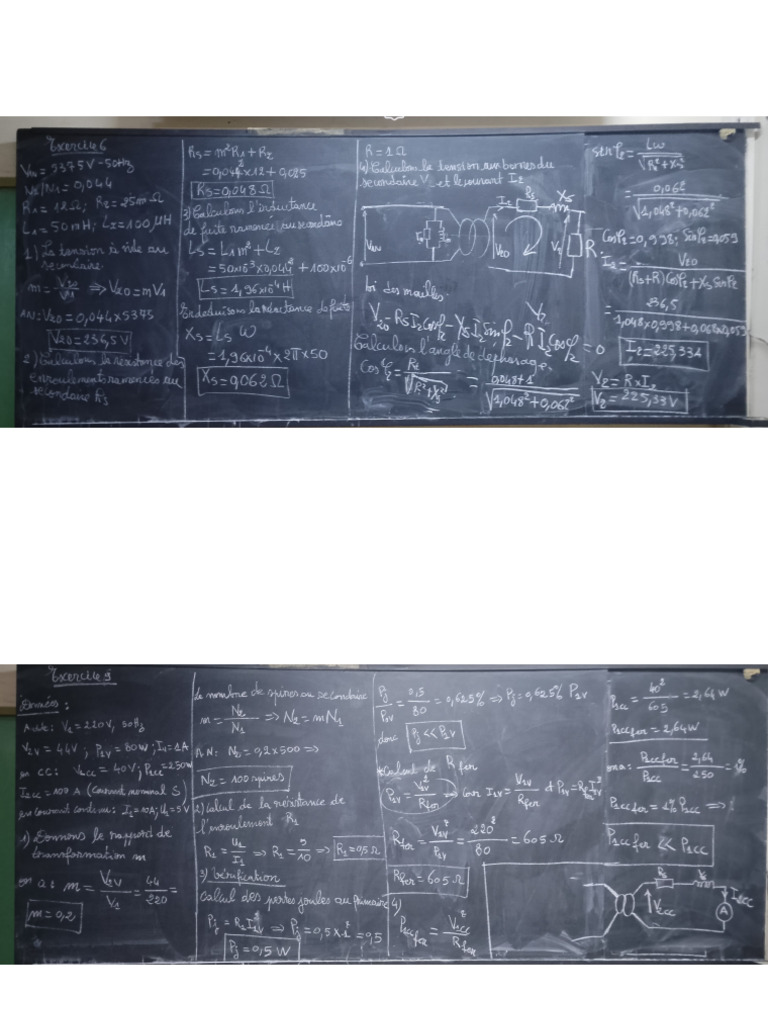 Exercice 6
V1N = 5375V - 50Hz
N2/N1 = 0,044
R1 = 12Ω; R2 = 25mΩ
L1 = 50mH; L2 = 100µH
1) La tension à vide au
secondaire.
m = V20/V1 ⟹ V20 = mV1
AN: V20 = 0,044 x 5375
V20 = 236,5V
2) Calculons la résistance des
enroulements ramenées au
secondaire Rs
Rs = m²R1 + R2
= 0,044² x 12 + 0,025
Rs = 0,048 Ω
3) Calculons l'inductance
de fuite ramenée au secondaire
Ls = L1m² + L2
= 50x10⁻³ x 0,044² + 100x10⁻⁶
Ls = 1,96x10⁻⁴ H
En deduisons la réactance de fuite
Xs = Ls W
= 1,96x10⁻⁴ x 2π x 50
Xs = 0,062 Ω
R = 1 Ω
4) Calculons la tension aux bornes du
secondaire V2 et le courant I2
I2 Rs Xs
V1N V20 V2 R
loi des mailles:
V20 - RsI2cosφ2 - XsI2sinφ2 - RI2cosφ2 = 0
Calculons l'angle de dephasage
= (0,048+1)/√(1,048² + 0,062²)
= 0,062/√(1,048² + 0,062²)
Cosφ2 = 0,998; Sinφ2 = 0,059
I2 = V20/((Rs+R)Cosφ2 + Xs Sinφ2)
= 236,5/(1,048x0,998+0,062x0,059)
I2 = 225,33A
V2 = R x I2
V2 = 225,33V
Exercice 9
Données:
A vide: V1 = 220V, 50Hz
V2V = 44V; P1V = 80W; I1V = 1A
en cc: V1CC = 40V; P1CC = 250W
I2CC = 100 A (Courant nominal S)
en courant continu: I1 = 10A; U1 = 5V
1) Donnons le rapport de
transformation m
on a: m = V2V/V1 = 44/220 =
m = 0,2
Le nombre de spires au secondaire
m = N2/N1 ⟹ N2 = mN1
A.N: N2 = 0,2 x 500 ⟹
N2 = 100 spires
2) Calcul de la résistance de
l'enroulement R1
R1 = U1/I1 ⟹ R1 = 5/10 ⟹ R1 = 0,5 Ω
3) Vérification
calcul des pertes joules au primaire
Pj = R1I1V² ⟹ Pj = 0,5 x 1² = 0,5
Pj = 0,5 W
Pj/P1V = 0,5/80 = 0,625% ⟹ Pj = 0,625% P1V
donc Pj << P1V
*Calcul de Rfer
P1V = V1V²/Rfer
Rfer = V1V²/P1V = 220²/80 = 605 Ω
Rfer = 605 Ω
4) P1ccfer = V1CC²/Rfer
P1CC = 40²/605 = 2,64 W
P1ccfer = 2,64W
on a: P1ccfer/P1CC = 2,64/250 = 1%
P1ccfer = 1% P1CC ⟹
P1ccfer << P1CC
Rs Xs I2CC
V2CC A